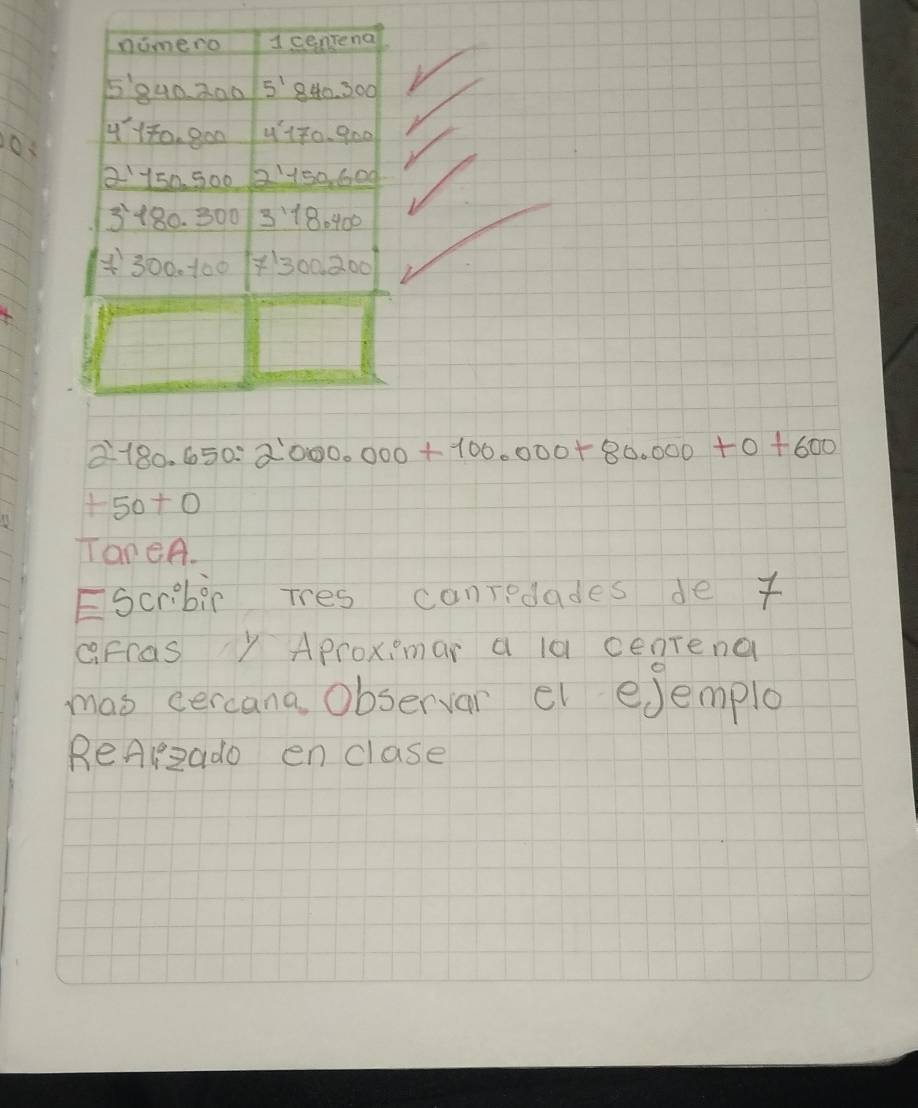 número 1 centena
5'840.200 5'840.300
4'170.800 4'170.900
2'150.500 2'150.600
3'180.300 3'18.400
7'300.100 7'300.200
2'180.650: 2'000.000 + 100.000 + 80.000 + 0 + 600
+ 50 + 0
TareA.
Escribir Tres cantidades de 7
cifras y Aproximar a la centena
mas cercana. Observar el ejemplo
ReAlizado en clase